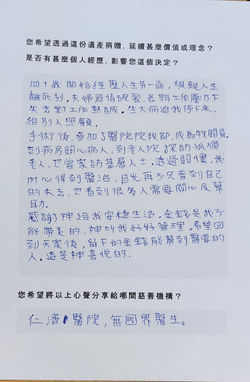 您希望透過這份遺產捐贈，延續甚麼價值或理念？
是否有甚麼個人經歷，影響您這個決定？
四十歲開始經歷人生另一面，與親人生
離死別。夫婦感情破裂，長期工作壓力下
失去對工作熱誠。生大病迫我停下來，
給別人照顧。
手術後，參加了醫院院牧部，成為義工，
到病房關心病人，到老人院探訪孤獨
老人，也當家訪基層人士。透過關懷，我
內心得到醫治，目光再不只看到自己
的失去，也看到很多人需要關心及幫
助。
感謝神給我安穩生活，金錢是我不
能帶走的，神叫我好好管理。希望回
到天家後，餘下的金錢能幫到需要的
人，這是神喜悅的。
您希望將以上心聲分享給哪間慈善機構？
仁濟醫院，無國界醫生。